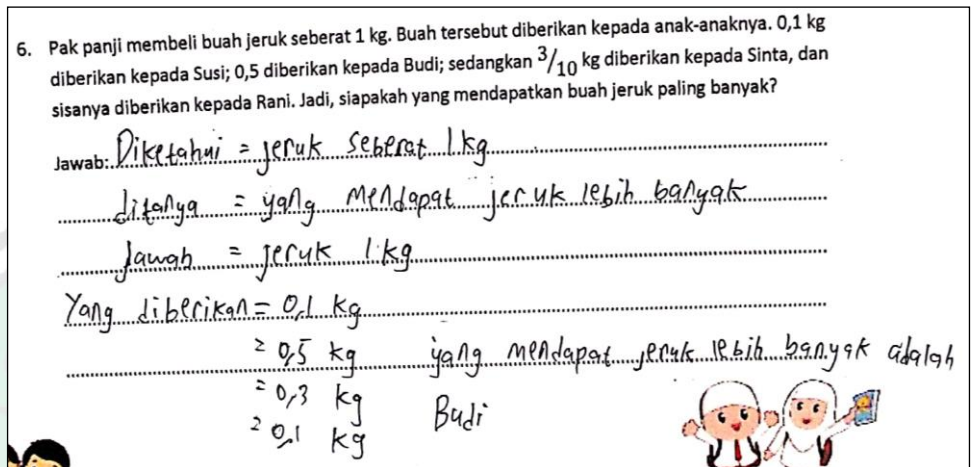 6. Pak panji membeli buah jeruk seberat 1 kg. Buah tersebut diberikan kepada anak-anaknya. 0,1 kg
diberikan kepada Susi; 0,5 diberikan kepada Budi; sedangkan 3/10 kg diberikan kepada Sinta, dan
sisanya diberikan kepada Rani. Jadi, siapakah yang mendapatkan buah jeruk paling banyak?
Jawab: Diketahui = jeruk seberat 1 kg
ditanya = yang mendapat jeruk lebih banyak
Jawab = jeruk 1 kg
Yang diberikan = 0,1 kg
= 0,5 kg yang mendapat jeruk lebih banyak adalah
= 0,3 kg Budi
= 0,1 kg